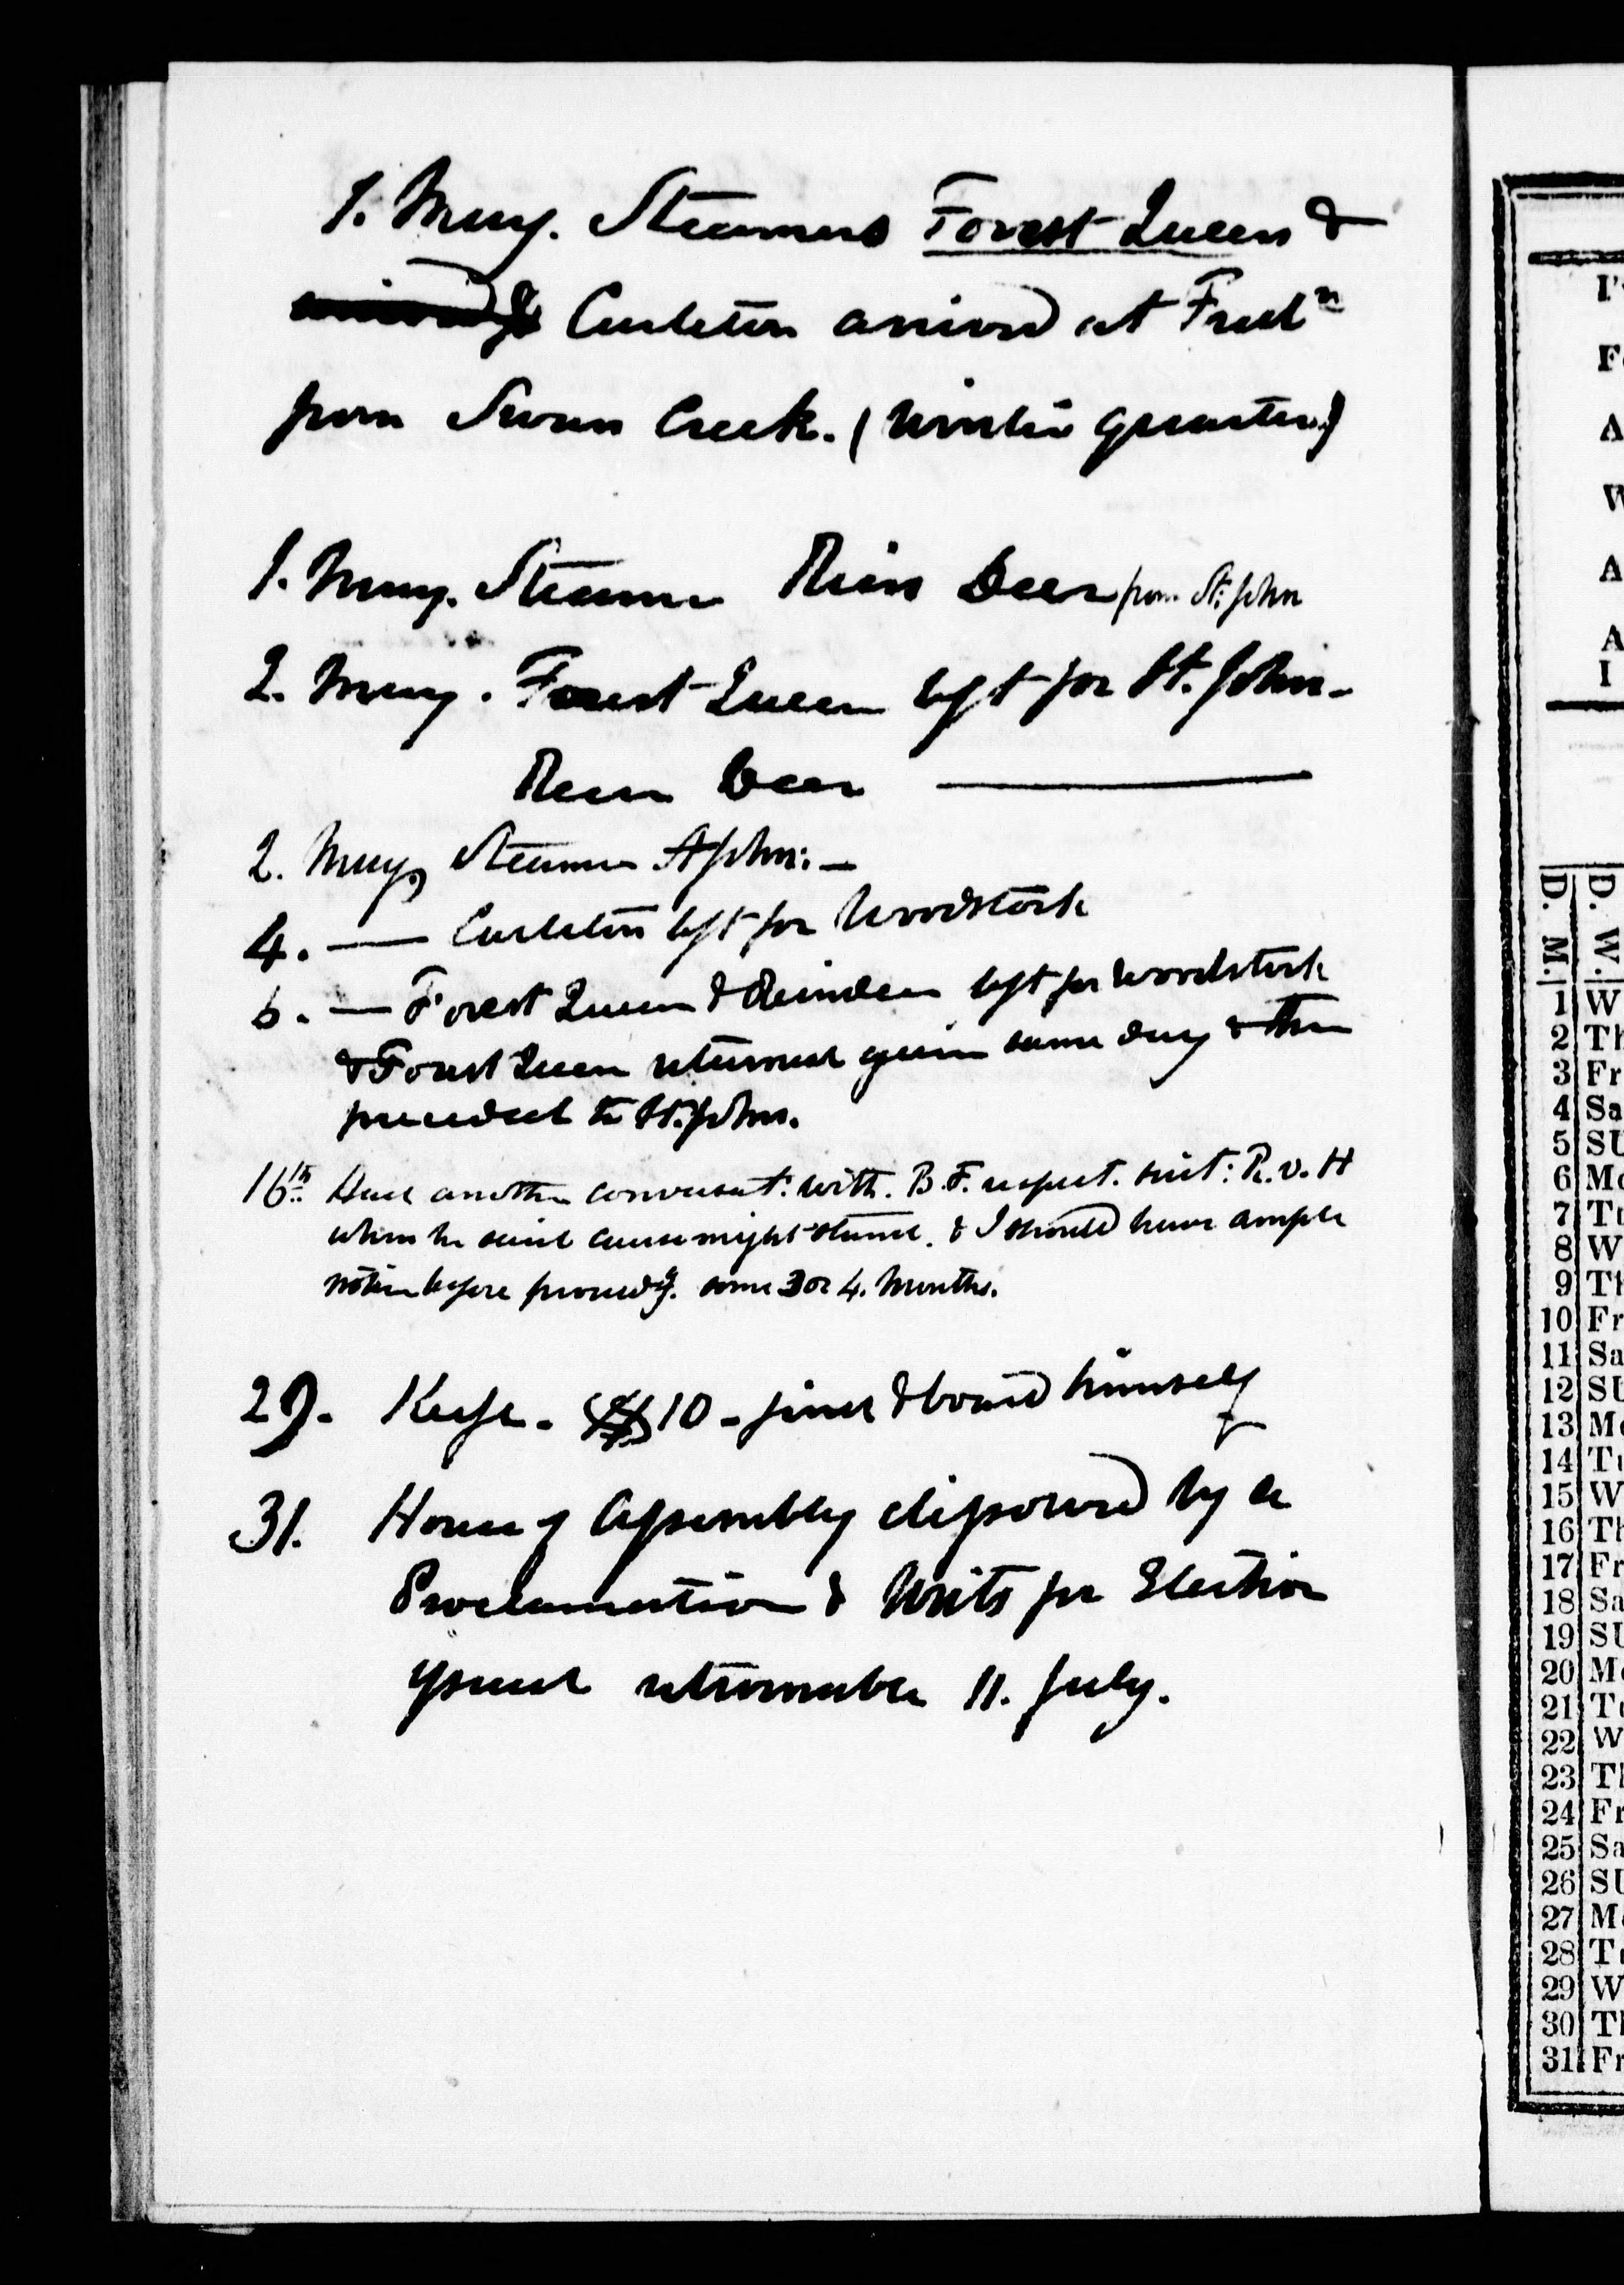 1. May. Steamers Forest Queen &
Carleton arrived at Fredn
from Swan Creek. (Winter quarters)
1. May. Steamer Rein Deer from St. John
2. May. Forest Queen left for St. John -
Rein Deer ———
2. May, Steamer St John: —
4. — Carleton left for Woodstock
6. — Forest Queen & Reindeer left for Woodstock
& Forest Queen returned again same day & then
proceeded to St. John.
16th Had another conversat: with. B. F. respect. suit: R. v. H
when he said cause might stand. & I should have ample
notice before proceedg. some 3 or 4. Months.
29. 10 - find & board himself
31. House of Assembly dissolved by a
Proclamation & Writs for Election
issued returnable 11. July.
D. M. D. W.
1 W
2 Th
3 Fr
4 Sa
5 SU
6 Mo
7 Tu
8 W
9 Th
10 Fr
11 Sa
12 SU
13 Mo
14 Tu
15 W
16 Th
17 Fr
18 Sa
19 SU
20 Mo
21 Tu
22 W
23 Th
24 Fr
25 Sa
26 SU
27 Mo
28 Tu
29 W
30 Th
31 Fr